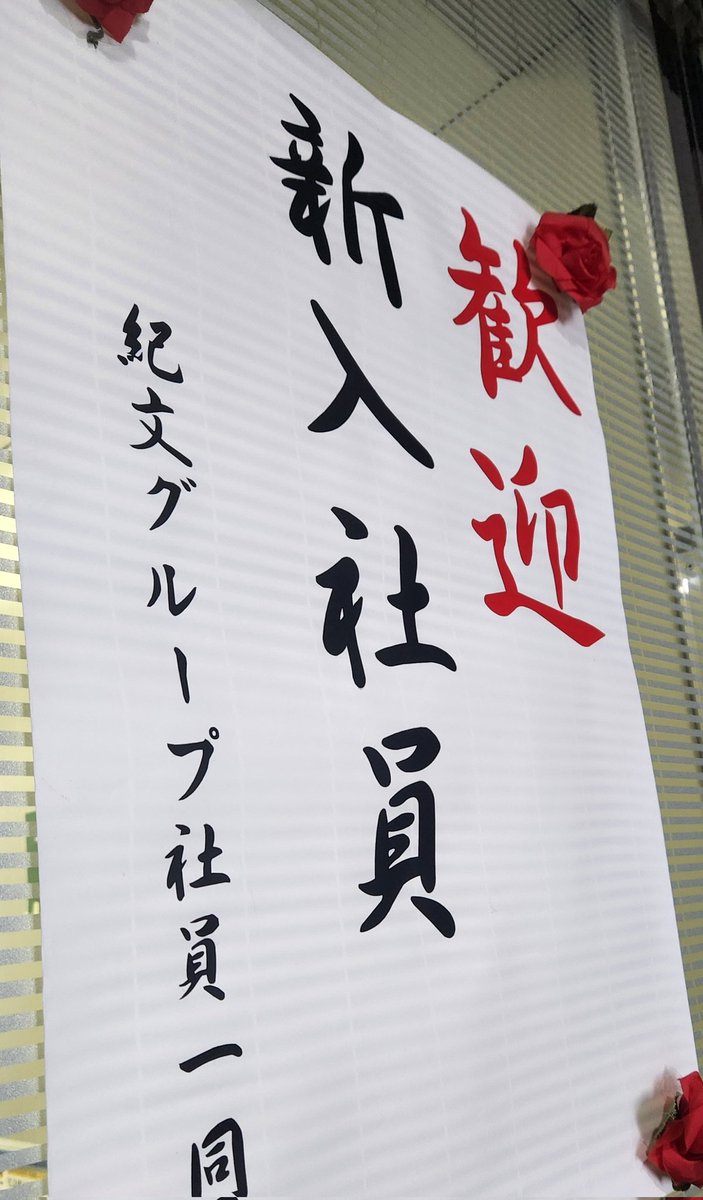 歓迎
新入社員
紀文グループ社員一同